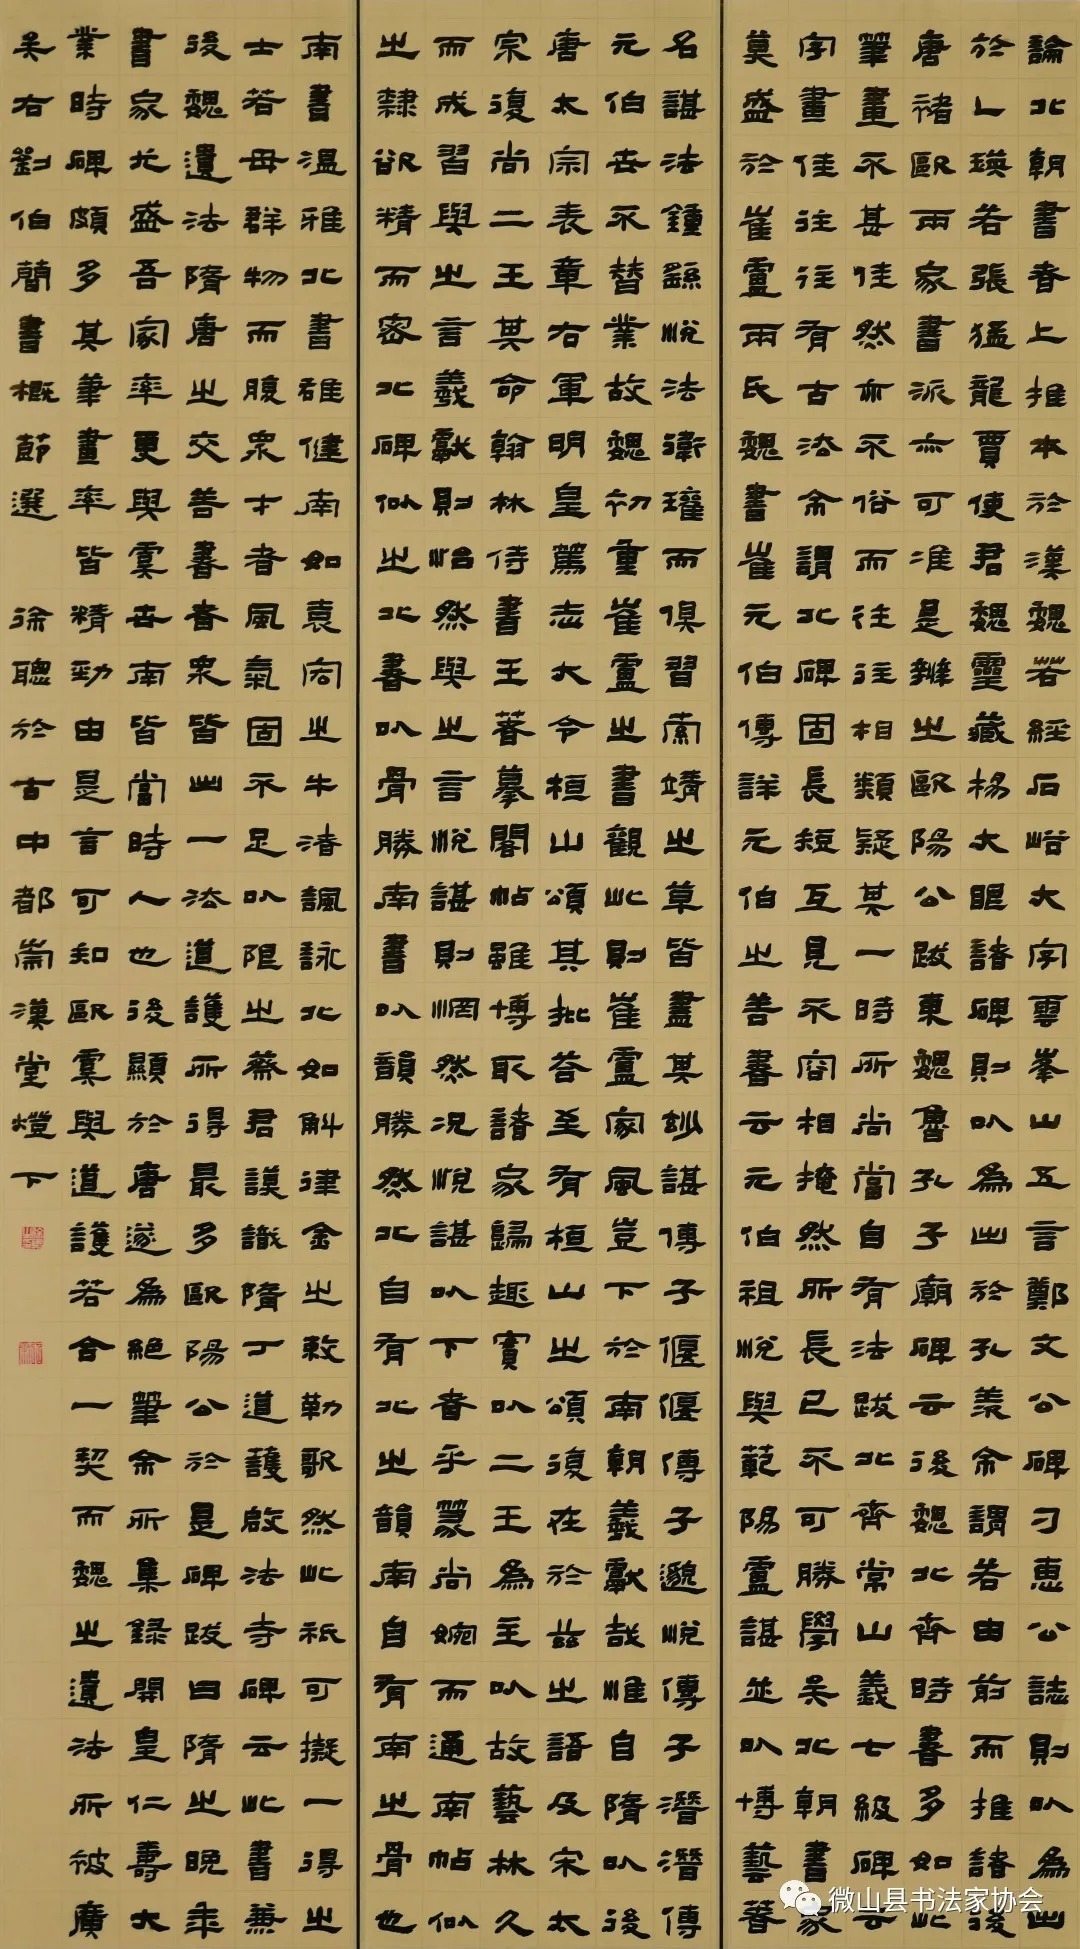 論北朝書者上推本於漢魏若經石峪大字雲峯山五言鄭文公碑刁惠公誌則以為出
於乚瑛若張猛龍賈使君魏靈藏楊大眼諸碑則以為出於孔羨余謂若由前而推諸後
唐褚歐兩家書派亦可準是辨之歐陽公跋東魏魯孔子廟碑云後魏北齊時書多如此
筆畫不甚佳然亦不俗而往往相類疑其一時所尚當自有法跋北齊常山義七級碑云
字畫佳往往有古法余謂北碑固長短互見不容相掩然所長已不可勝學矣北朝書家
莫盛於崔盧兩氏魏書崔元伯傳詳元伯之善書云元伯祖悅與範陽盧諶並以博藝著
名諶法鍾繇悅法衛瓘而俱習索靖之草皆盡其妙諶傳子偃偃傳子邈悅傳子潛潛傳
元伯世不替業故魏初重崔盧之書觀此則崔盧家風豈下於南朝羲獻哉惟自隋以後
唐太宗表章右軍明皇篤志大令桓山頌其批答至有桓山之頌復在於茲之語及宋太
宗復尚二王其命翰林侍書王著摹閣帖雖博取諸家歸趣實以二王為主以故藝林久
而成習與之言羲獻則怡然與之言悅諶則惘然況悅諶以下者乎篆尚婉而通南帖似
之隸欲精而密北碑似之北書以骨勝南書以韻勝然北自有北之韻南自有南之骨也
南書溫雅北書雄健南如袁宏之牛渚諷詠北如斛律金之敕勒歌然此祇可擬一得之
士若母群物而腹眾才者風氣固不足以限之蔡君謨識隋丁道護啟法寺碑云此書兼
後魏遺法隋唐之交善書者眾皆出一法道護所得最多歐陽公於是碑跋曰隋之晚年
書家尤盛吾家率更與虞世南皆當時人也後顯於唐遂為絕筆余所集錄開皇仁壽大
業時碑頗多其筆畫率皆精勁由是言可知歐虞與道護若合一契而魏之遺法所被廣
矣右劉伯簡書概節選 徐聰於古中都崇漢堂燈下
微山县书法家协会